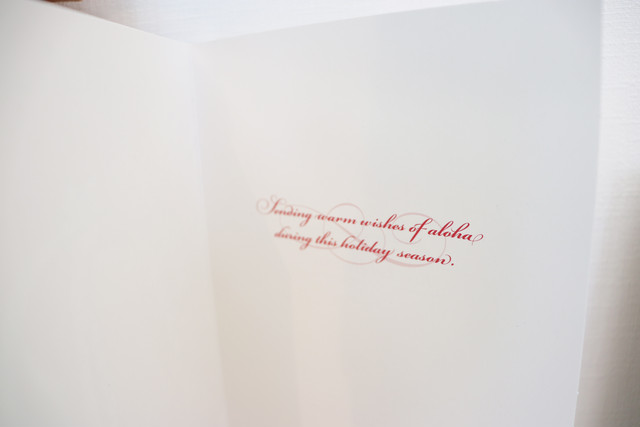 Sending warm wishes of aloha
during this holiday season.